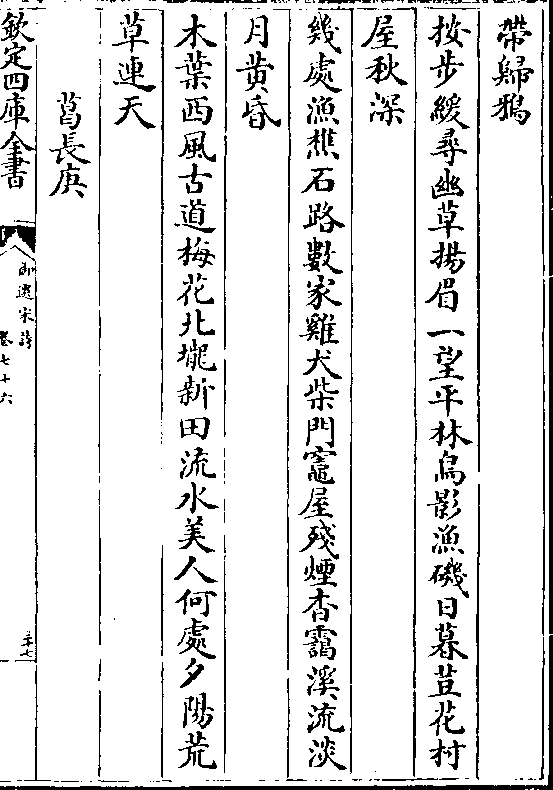 帶歸鴉
按步緩尋幽草揚眉一望平林鳥影漁磯日暮荳花村
屋秋深
幾處漁樵石路數家雞犬柴門竈屋殘煙杳靄溪流淡
月黄昏
木葉西風古道梅花北壠新田流水美人何處夕陽荒
草連天
葛長庚
欽定四庫全書
御選宋詩
卷七十六
三十七